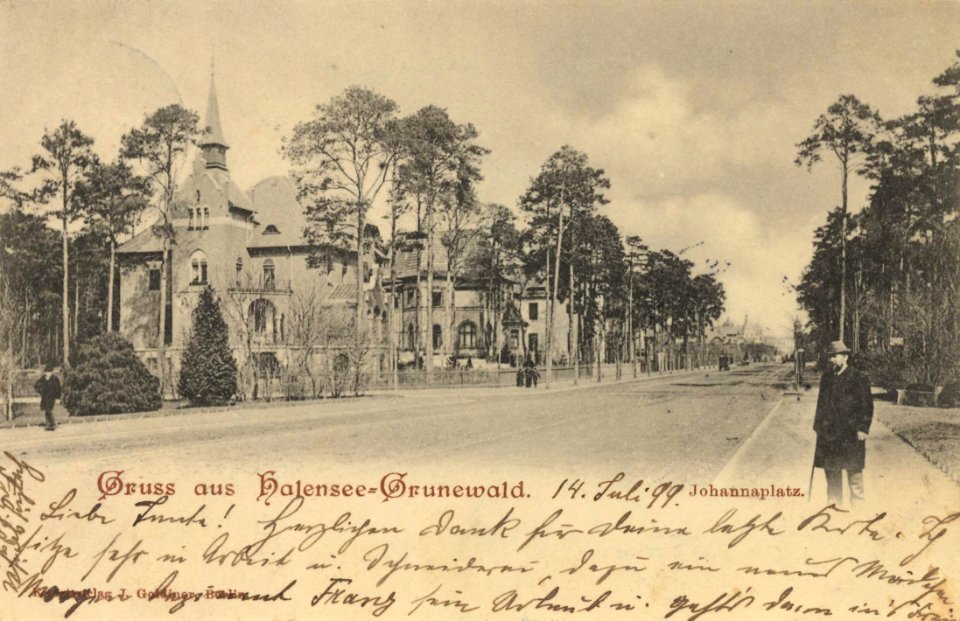 Gruss aus Halensee-Grunewald. 14. Juli 99 Johannaplatz.
Liebe Tante! Herzlichen Dank für deine letzte Karte. Ich
sitze sehr in Arbeit u. Schneiderei, dazu ein neues Mädchen.
Morgen Franz sein Urlaub u. geht's dann in's
Kunstverlag J. Goldiner, Berlin